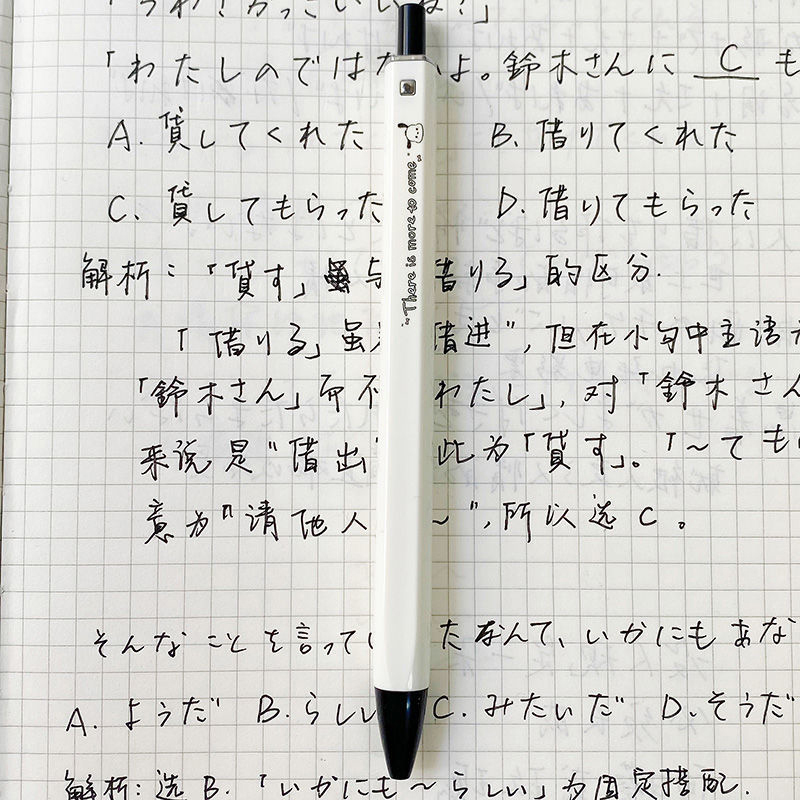 「うわ！かっこいいね？」
「わたしのではな よ。鈴木さんに C も
A. 貸してくれた B. 借りてくれた
C. 貸してもらった D. 借りてもらった
解析：「貸す」与 借りる」的区分.
「借りる」虽 借进”，但在小句中主语为
「鈴木さん」而不 わたし」，对「鈴木さん
来说是“借出 此为「貸す」。「～ても
意为“请他人 ～”，所以选C。
そんなことを言ってい たなんて、いかにもあな
A. ようだ B. らしい C. みたいだ D. そうだ
解析：选B.「いかにも～らしい」为固定搭配.
~There is more to come~